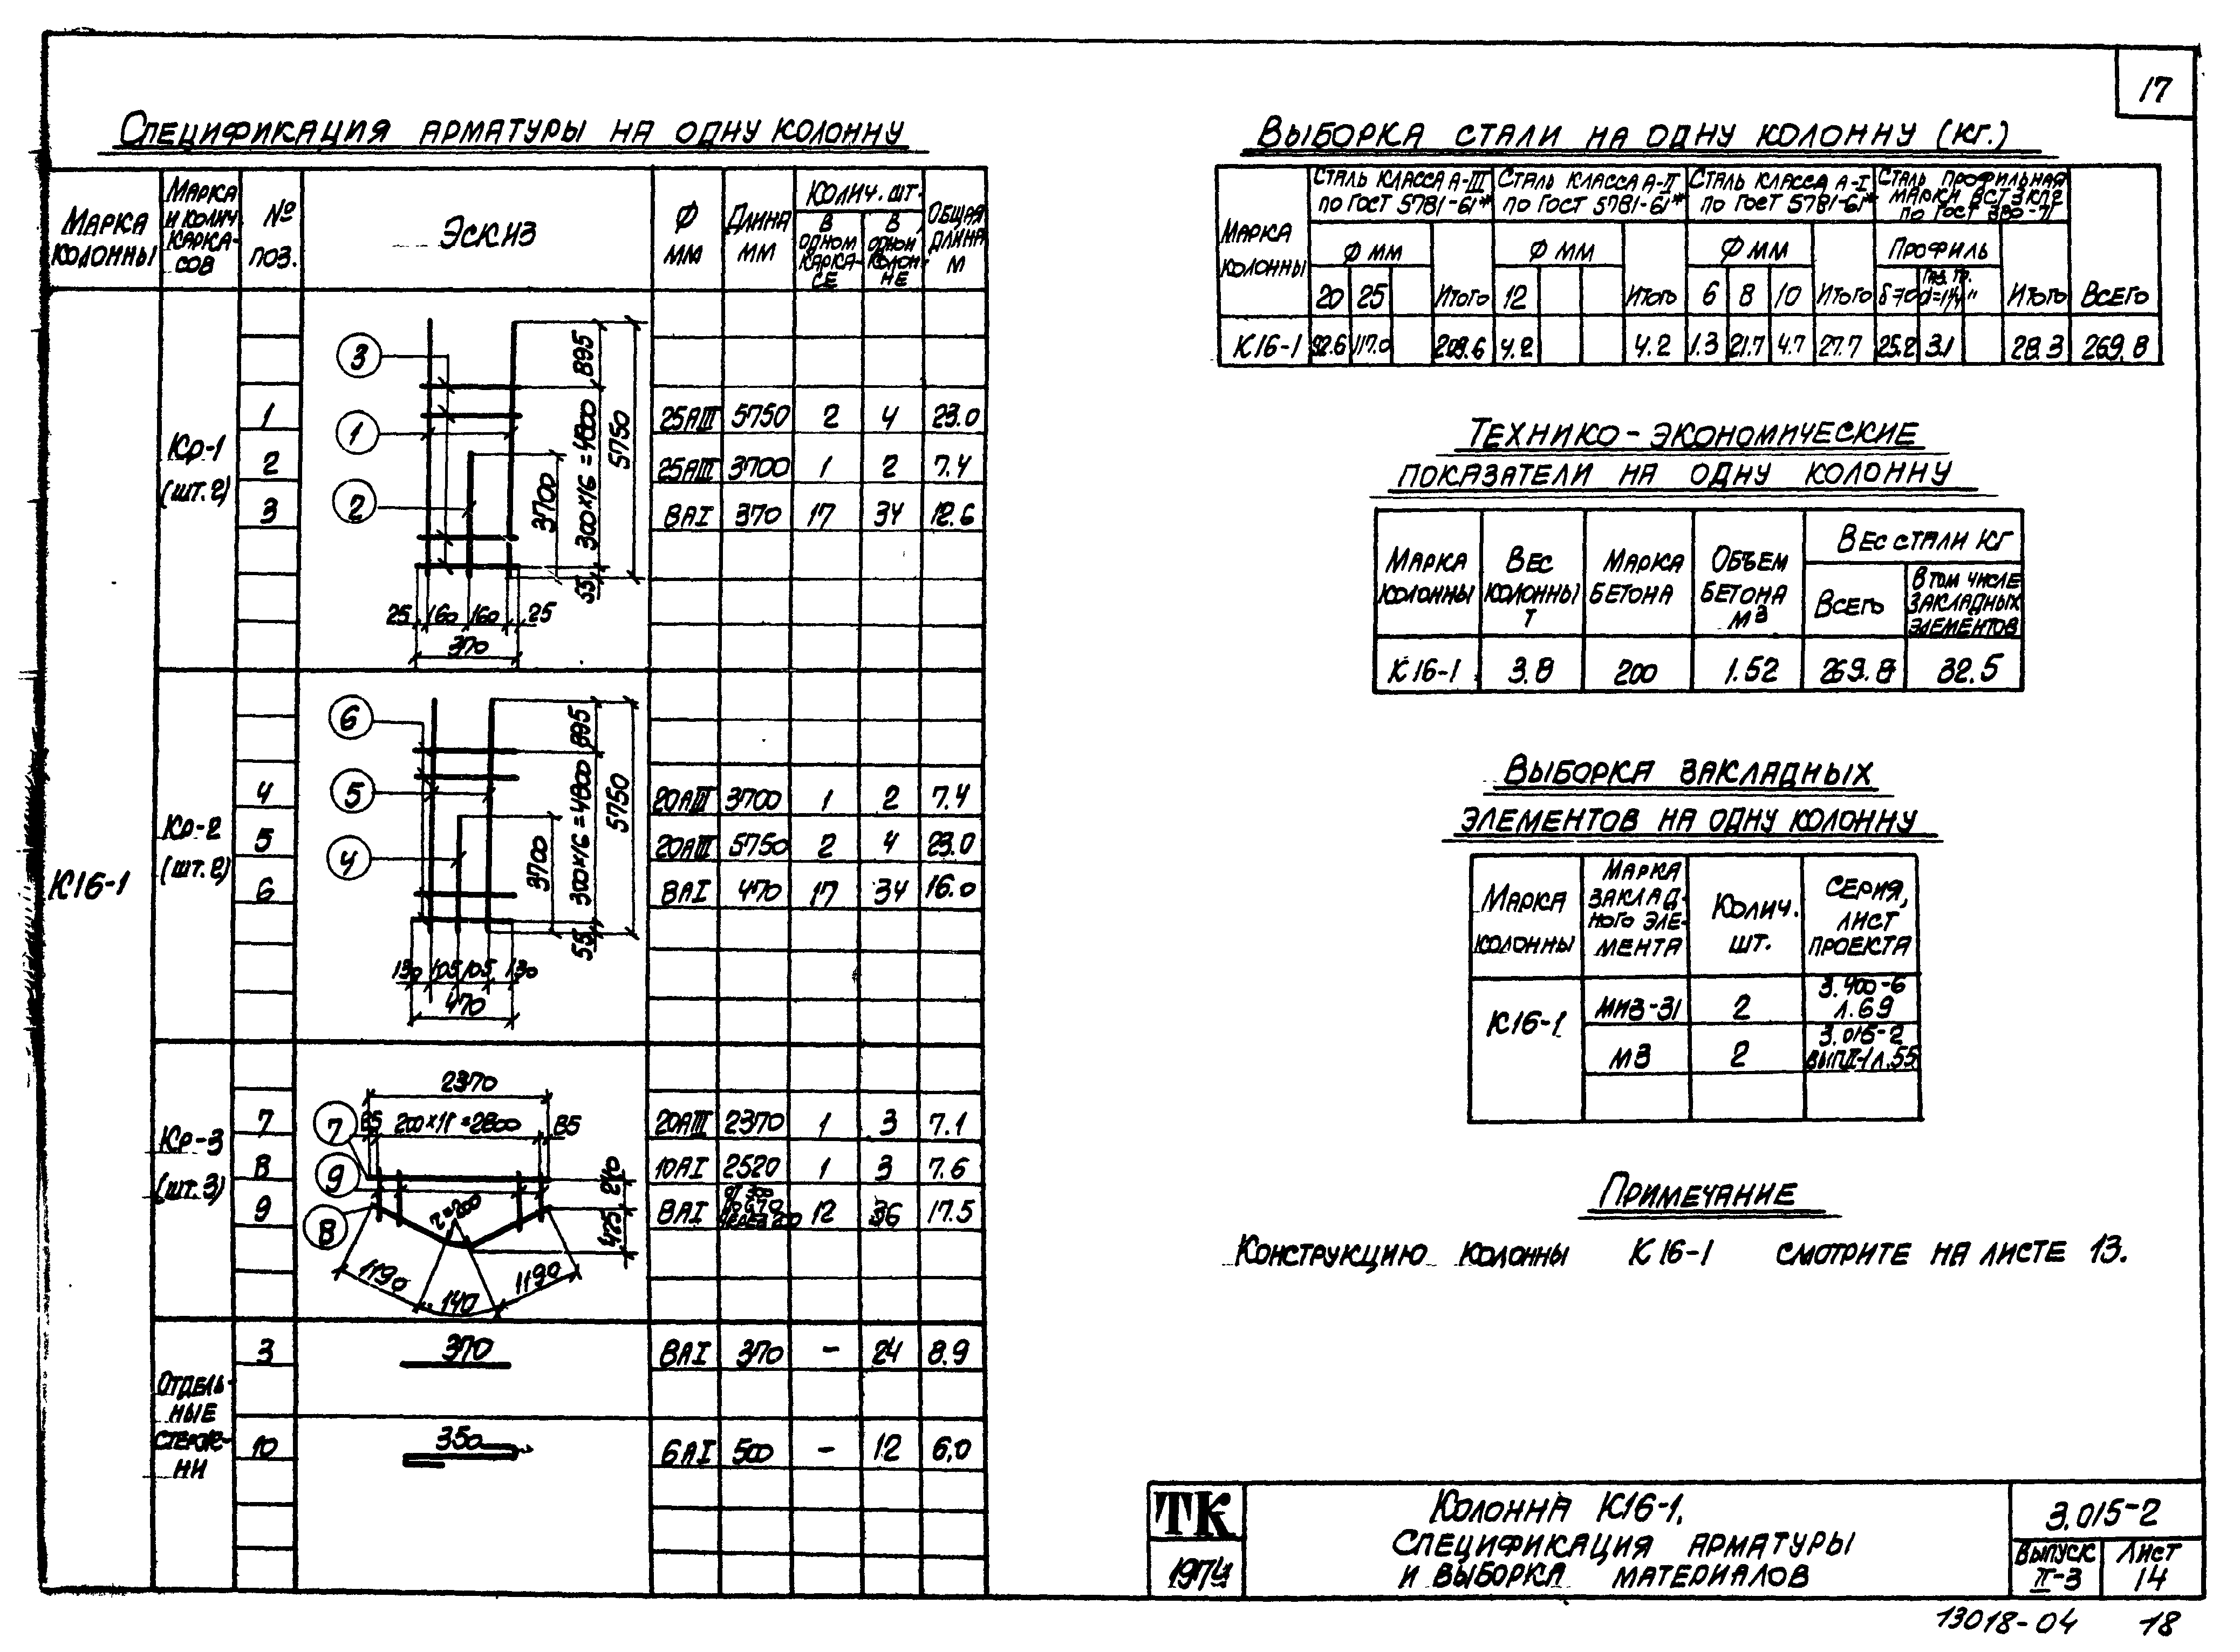 17
Спецификация арматуры на одну колонну
Марка колонны
Марка и колич. каркасов
№ поз.
Эскиз
Ф мм
Длина мм
Колич. шт.
в одном каркасе
в одной колонне
Общая длина м
К16-1
Кр-1 (шт.2)
1 25АIII 5750 2 4 23.0
2 25АIII 3700 1 2 7.4
3 8АI 370 17 34 12.6
3
1
2
895
300×16=4800
5750
3700
55
25 160 160 25
370
Кр-2 (шт.2)
4 20АIII 3700 1 2 7.4
5 20АIII 5750 2 4 23.0
6 8АI 470 17 34 16.0
6
5
4
895
300×16=4800
5750
3700
55
130 105 105 130
470
Кр-3 (шт.3)
7 20АIII 2370 1 3 7.1
8 10АI 2520 1 3 7.6
9 8АI от 300 до 670 через 200 12 36 17.5
2370
85 200×11=2800 85
7
9
8
240
425
r=200
1190 140 1190
Отдельные стержни
3 370 8АI 370 - 24 8.9
10 350 6АI 500 - 12 6.0
Выборка стали на одну колонну (кг.)
Марка колонны
Сталь класса А-III по ГОСТ 5781-61*
Сталь класса А-II по ГОСТ 5781-61*
Сталь класса А-I по ГОСТ 5781-61*
Сталь профильная марки ВСт3кп2 по ГОСТ 380-71
Ф мм
Ф мм
Ф мм
Профиль
20 25 Итого 12 Итого 6 8 10 Итого δ70 Газ. тр. d=1¼" Итого Всего
К16-1 92.6 117.0 209.6 4.2 4.2 1.3 21.7 4.7 27.7 25.2 3.1 28.3 269.8
Технико-экономические
показатели на одну колонну
Марка колонны
Вес колонны т
Марка бетона
Объем бетона м³
Вес стали кг
Всего
В том числе закладных элементов
К16-1 3.8 200 1.52 269.8 32.5
Выборка закладных
элементов на одну колонну
Марка колонны
Марка закладного элемента
Колич. шт.
Серия, лист проекта
К16-1
МН3-31 2 3.400-6 л.69
М3 2 3.015-2 вып.II-1 л.55
Примечание
Конструкцию колонны К16-1 смотрите на листе 13.
ТК
1974
Колонна К16-1.
Спецификация арматуры
и выборка материалов
3.015-2
Выпуск II-3
Лист 14
13018-04 18